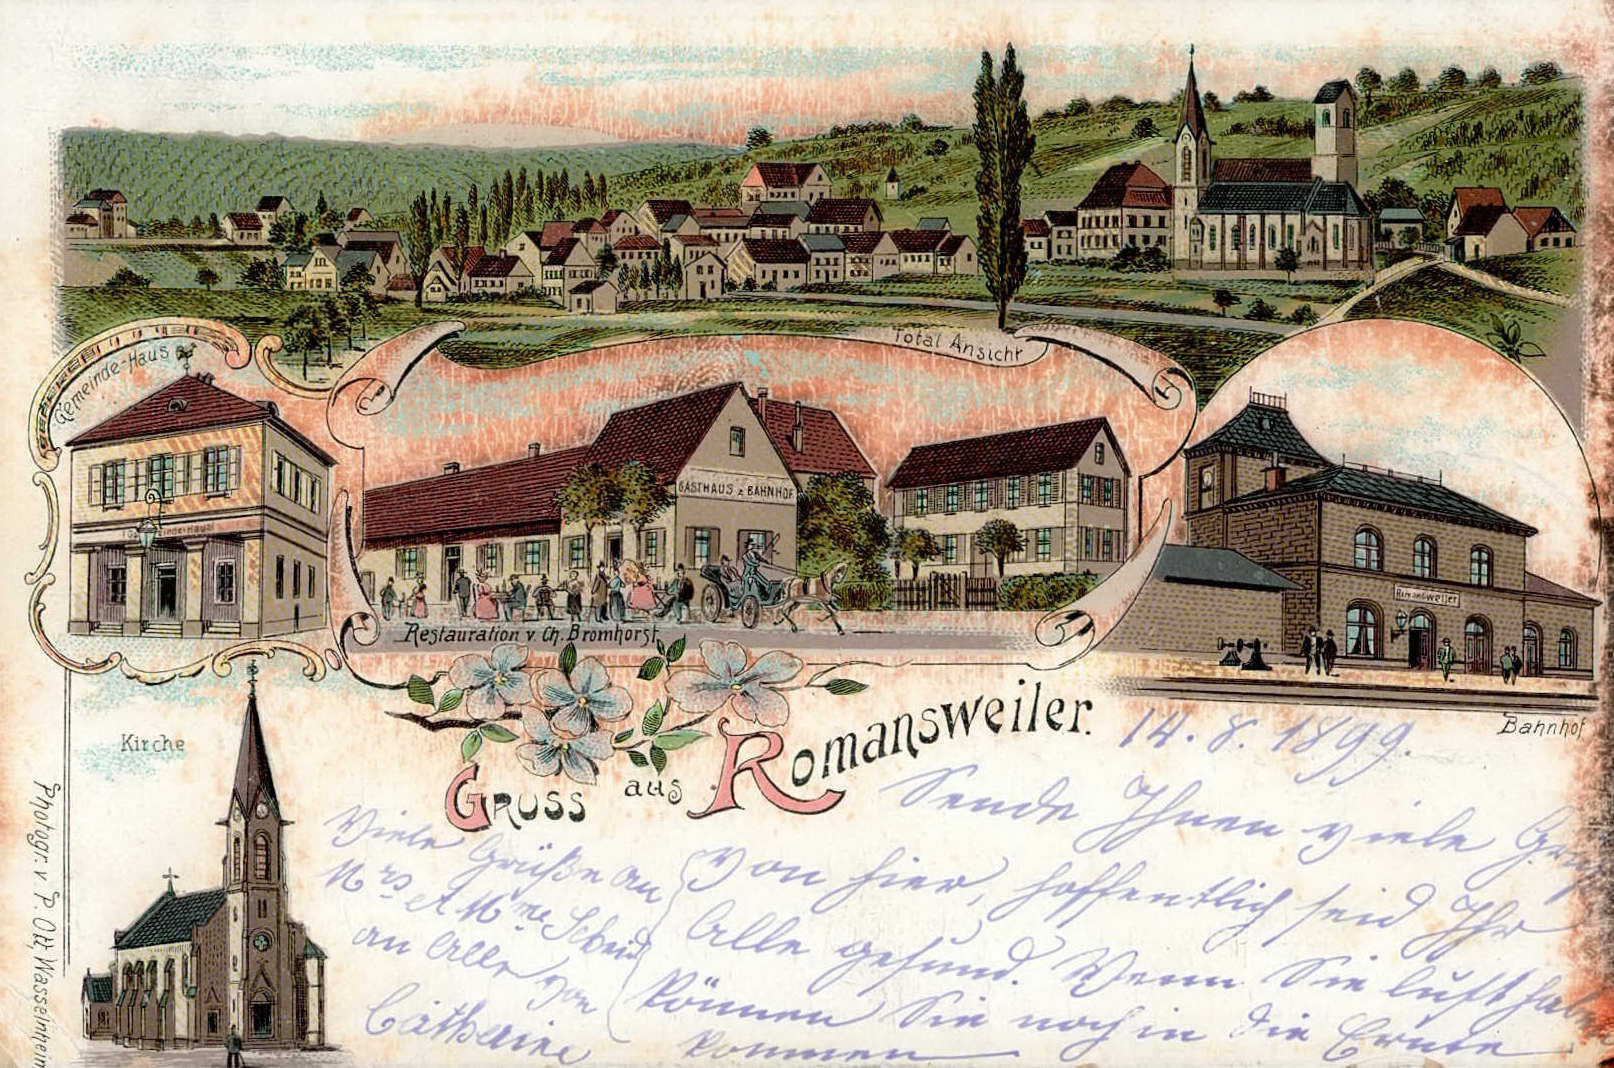 Total Ansicht
Gemeinde-Haus
GASTHAUS z. BAHNHOF
Restauration v. Ch. Bromhorst.
Romansweiler
Bahnhof
Kirche
Gruss aus Romansweiler.
Photogr. v. P. Ott, Wasselnheim
14. 8. 1899.
Sende Ihnen viele
von hier, hoffentlich seid Ihr
Alle gesund. Wenn Sie Lust haben
können Sie noch in die Ernte
kommen
Viele Grüße an
Mrs et Mme
an Alle von
Catherine